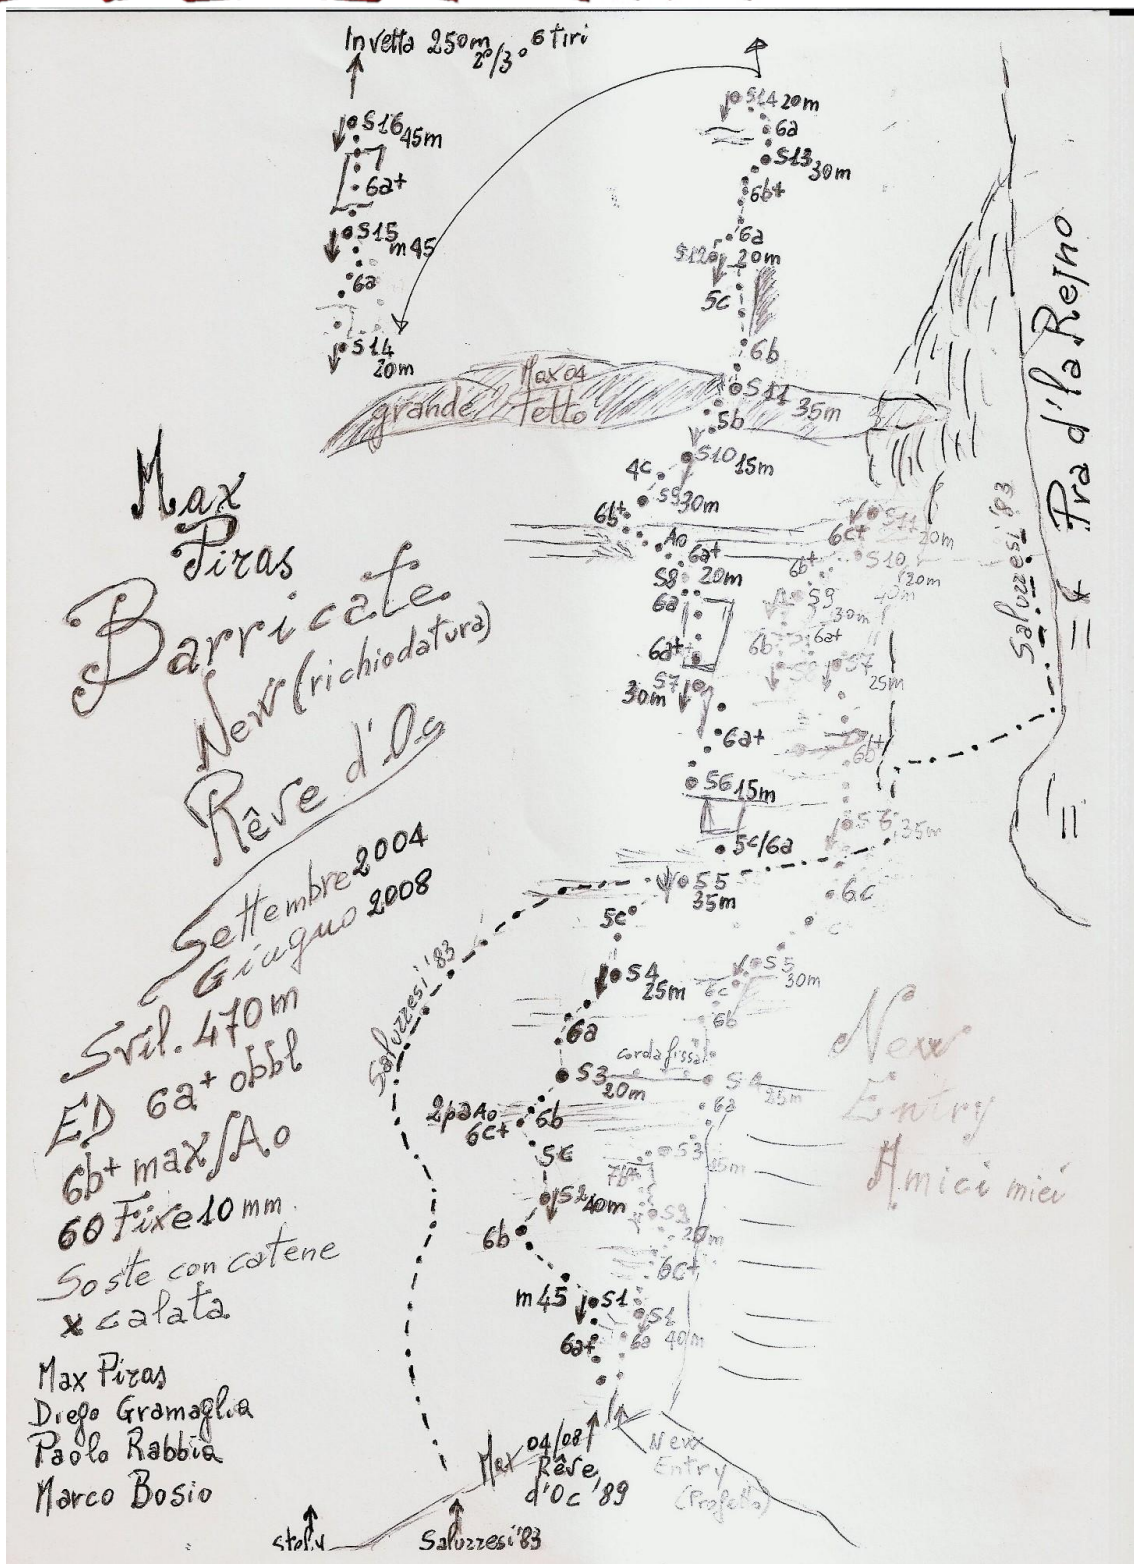 In vetta 250m
2°/3° 6 tiri
S16
45m
6a+
S15
m45
6a
S14
20m
S14 20m
6a
S13
30m
6b+
6a
S12
20m
5c
6b
Max 04
grande Tetto
S11
35m
5b
S10
15m
4c
S9
30m
6b+
A0
6a+
S8 20m
6a
6a+
S7
30m
6a+
S6 15m
5c/6a
S5
35m
5c
S4
25m
6a
corda fissa
S3
20m
2pa A0
6c+
6b
S2
40m
6b
m45
S1
6a+
S11
20m
6c+
S10
20m
6b+
S9
30m
6a+
6b
S7
25m
6b+
S6
35m
6c
S5
30m
6c
6b
S4
25m
6a
S3
7b+
20m
6c+
S1
40m
6a
Saluzzesi '83
Pra d' la Rejno
Saluzzesi '83
Max
Piras
Barricate
New (richiodatura)
Rêve d'Oc
Settembre 2004
Giugno 2008
Svil. 470 m
ED 6a+ obbl
6b+ max/A0
60 Fixe 10 mm
Soste con catene
x calata
Max Piras
Diego Gramaglia
Paolo Rabbia
Marco Bosio
New
Entry
Amici miei
Max 04/08
Rêve
d'Oc '89
New
Entry
(Progetto)
Saluzzesi '83